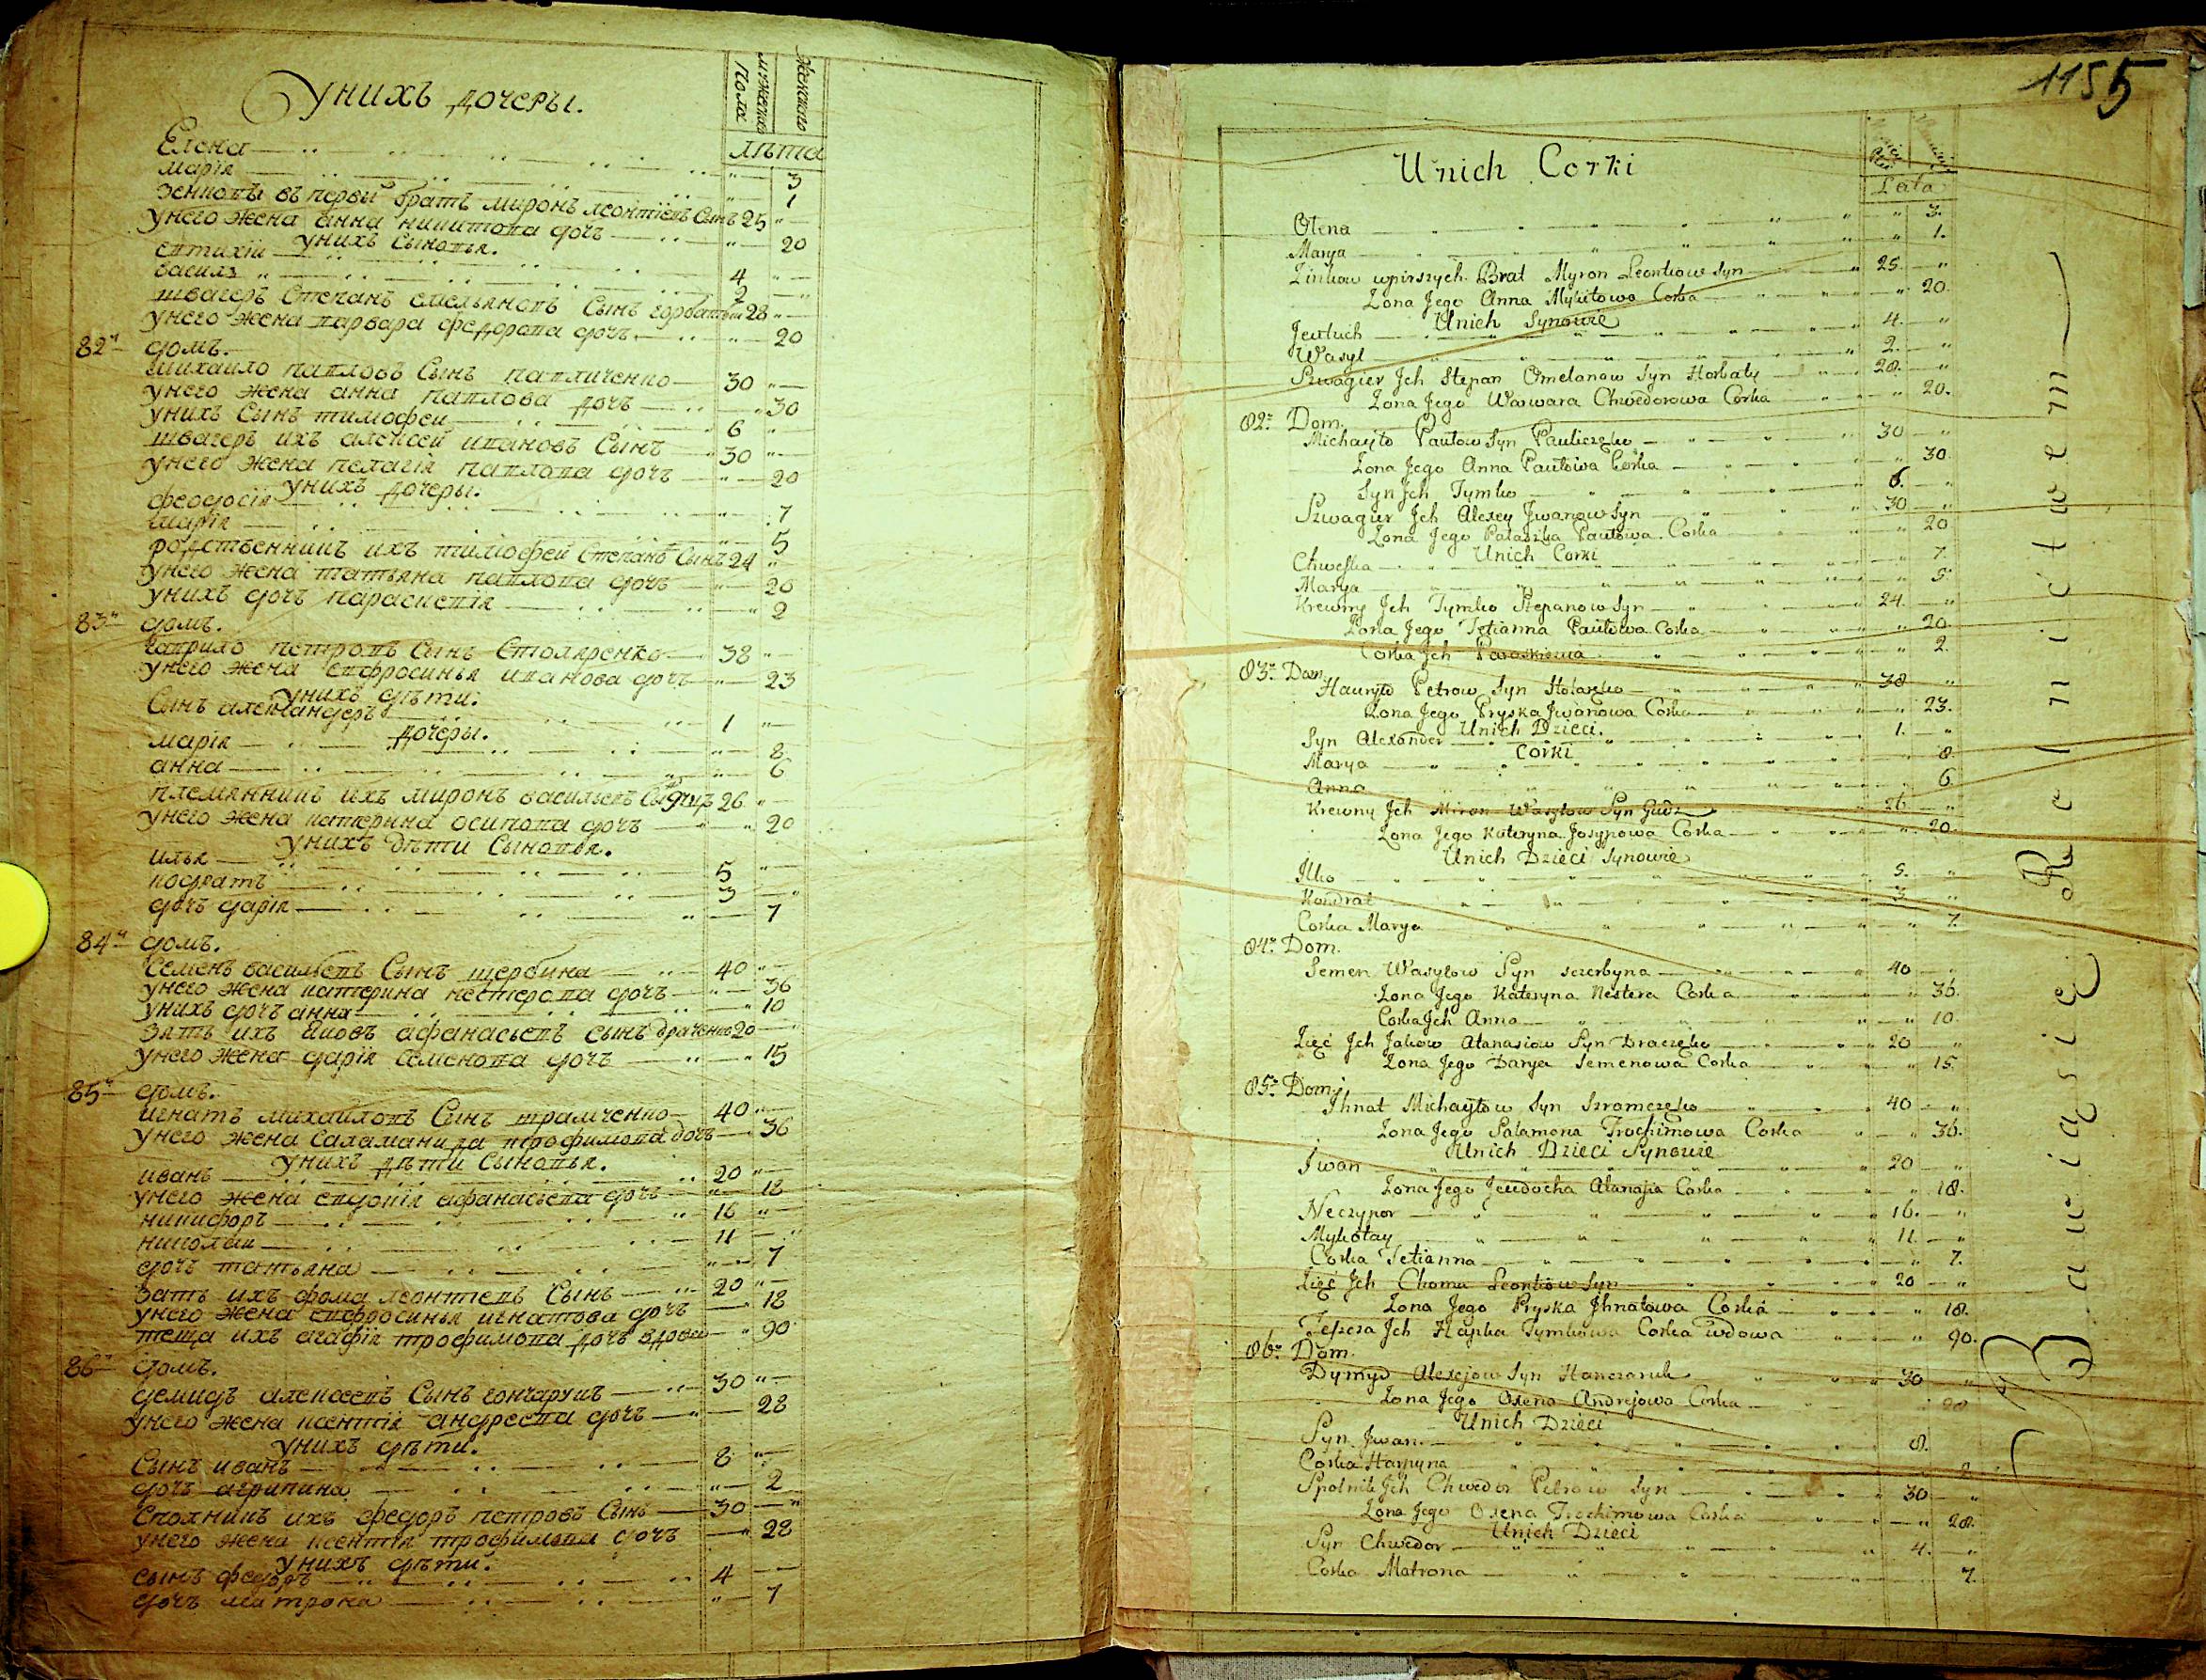 Унихъ дочеры.
мужеска Пола
женскаго
лѣта
Елена 3
марія 1
зенкопы въ первы братъ миронъ леонтіевъ Сынъ 25
унего жена анна никитова дочъ 20
унихъ Сыновья.
евтихіи 4
василь 2
швагеръ Степанъ емельяновъ Сынъ горбатыи 28
унего жена варвара федорова дочъ 20
82й домъ.
михаило павловъ Сынъ павличенко 30
унего жена анна павлова дочъ 30
унихъ Сынъ тимофеи 6
швагеръ ихъ алексеи ивановъ Сынъ 30
унего жена пелагія павлова дочъ 20
унихъ дочеры.
феодосія 7
марія 5
родственникъ ихъ тимофеи Степановъ Сынъ 24
унего жена татьяна павлова дочъ 20
унихъ дочъ параскевія 2
83й домъ.
гаврило петровъ Сынъ Столяренко 38
унего жена евфросинья иванова дочъ 23
унихъ дѣти.
Сынъ александеръ 1
дочеры.
марія 8
анна 6
племянникъ ихъ миронъ васильевъ Сынъ 26
унего жена катерина осипова дочъ 20
унихъ дѣти Сыновья.
илья 5
кодратъ 3
дочъ дарія 7
84й домъ.
Семенъ васильевъ Сынъ щербина 40
унего жена катерина нестерова дочъ 36
унихъ дочъ анна 10
зять ихъ яковъ афанасьевъ Сынъ драченко 20
унего жена дарія Семенова дочъ 15
85й домъ.
игнатъ михаиловъ Сынъ шрамченко 40
унего жена Саламанида трофимова дочъ 36
унихъ дѣти Сыновья.
иванъ 20
унего жена евдокія афанасьева дочъ 18
никифоръ 16
николаи 11
дочъ татьяна 7
зять ихъ фома леонтіевъ Сынъ 20
унего жена евфросинья игнатова дочъ 18
теща ихъ агафія трофимова дочъ вдова 90
86й домъ.
демидъ алексеевъ Сынъ гончарукъ 30
унего жена ксентія андреева дочъ 28
унихъ дѣти.
Сынъ иванъ 8
дочъ агрипина 2
Сполникъ ихъ федоръ петровъ Сынъ 30
унего жена ксентія трофимова дочъ 28
унихъ дѣти.
сынъ федоръ 4
дочъ матрона 7
1155
Unich Corki
Lata
Olena 3.
Marya 1.
Zinkow wpirszych Brat Myron Leontiow Syn 25
Zona Jego Anna Mykitowa Corka 20
Unich Synowie
Jewtuch 4.
Wasyl 2.
Szwagier Jch Stepan Omelanow Syn Horbaty 28.
Zona Jego Warwara Chwedorowa Corka 20.
82. Dom.
Michayło Pawłow Syn Pawliczenko 30
Zona Jego Anna Pawłowa Corka 30.
Syn Jch Tymko 6.
Szwagier Jch Alexey Jwanow Syn 30
Zona Jego Pałaszka Pawłowa Corka 20
Unich Corki
Chweska 7.
Marya 5
Krewny Jch Tymko Stepanow Syn 24.
Zona Jego Tetianna Pawłowa Corka 20.
Corka Jch Paraskiewia 2.
83. Dom
Hawryło Petrow Syn Stolarenko 38
Zona Jego Pryska Jwanowa Corka 23.
Unich Dzieci.
Syn Alexander 1.
Corki
Marya 8
Anna 6
Krewny Jch Miron Wasylow Syn Gudz 26
Zona Jego Kateryna Josypowa Corka 20.
Unich Dzieci Synowie
Jlko 5.
Kondrat 3
Corka Marya 7.
84. Dom.
Semen Wasylow Syn Szczerbyna 40
Zona Jego Kateryna Nestera Corka 36.
Corka Jch Anna 10.
Zięć Jch Jakow Atanasiow Syn Draczenko 20
Zona Jego Darya Semenowa Corka 15
85. Dom.
Jhnat Michayłow Syn Szramczenko 40
Zona Jego Salamona Trochimowa Corka 36.
Unich Dzieci Synowie
Jwan 20
Zona Jego Jewdocha Atanasia Corka 18.
Neczypor 16.
Mykołay 11.
Corka Tetianna 7.
Zięć Jch Choma Leontiow Syn 20
Zona Jego Pryska Jhnatowa Corka 18.
Teszcza Jch Hapka Tymkowa Corka wdowa 90.
86. Dom.
Dymyd Alexejow Syn Hanczaruk 30
Zona Jego Oxena Andrejowa Corka 28
Unich Dzieci
Syn Jwan 8.
Corka Harpyna 2
Spolnik Jch Chwedor Petrow Syn 30
Zona Jego Oxena Trochimowa Corka 28.
Unich Dzieci
Syn Chwedor 4.
Corka Matrona 7.